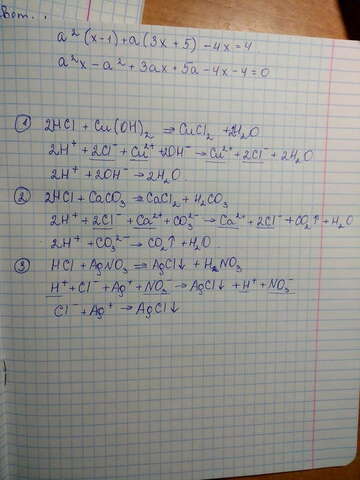 Вот.
a²(x-1)+a(3x+5)-4x=4
a²x-a²+3ax+5a-4x-4=0
① 2HCl + Cu(OH)₂ ⇒ CuCl₂ + 2H₂O
2H⁺ + 2Cl⁻ + Cu²⁺ + 2OH⁻ → Cu²⁺ + 2Cl⁻ + 2H₂O
2H⁺ + 2OH⁻ → 2H₂O.
② 2HCl + CaCO₃ ⇒ CaCl₂ + H₂CO₃
2H⁺ + 2Cl⁻ + Ca²⁺ + CO₃²⁻ → Ca²⁺ + 2Cl⁻ + CO₂↑ + H₂O
2H⁺ + CO₃²⁻ → CO₂↑ + H₂O.
③ HCl + AgNO₃ ⇒ AgCl↓ + HNO₃
H⁺ + Cl⁻ + Ag⁺ + NO₃⁻ → AgCl↓ + H⁺ + NO₃⁻
Cl⁻ + Ag⁺ → AgCl↓